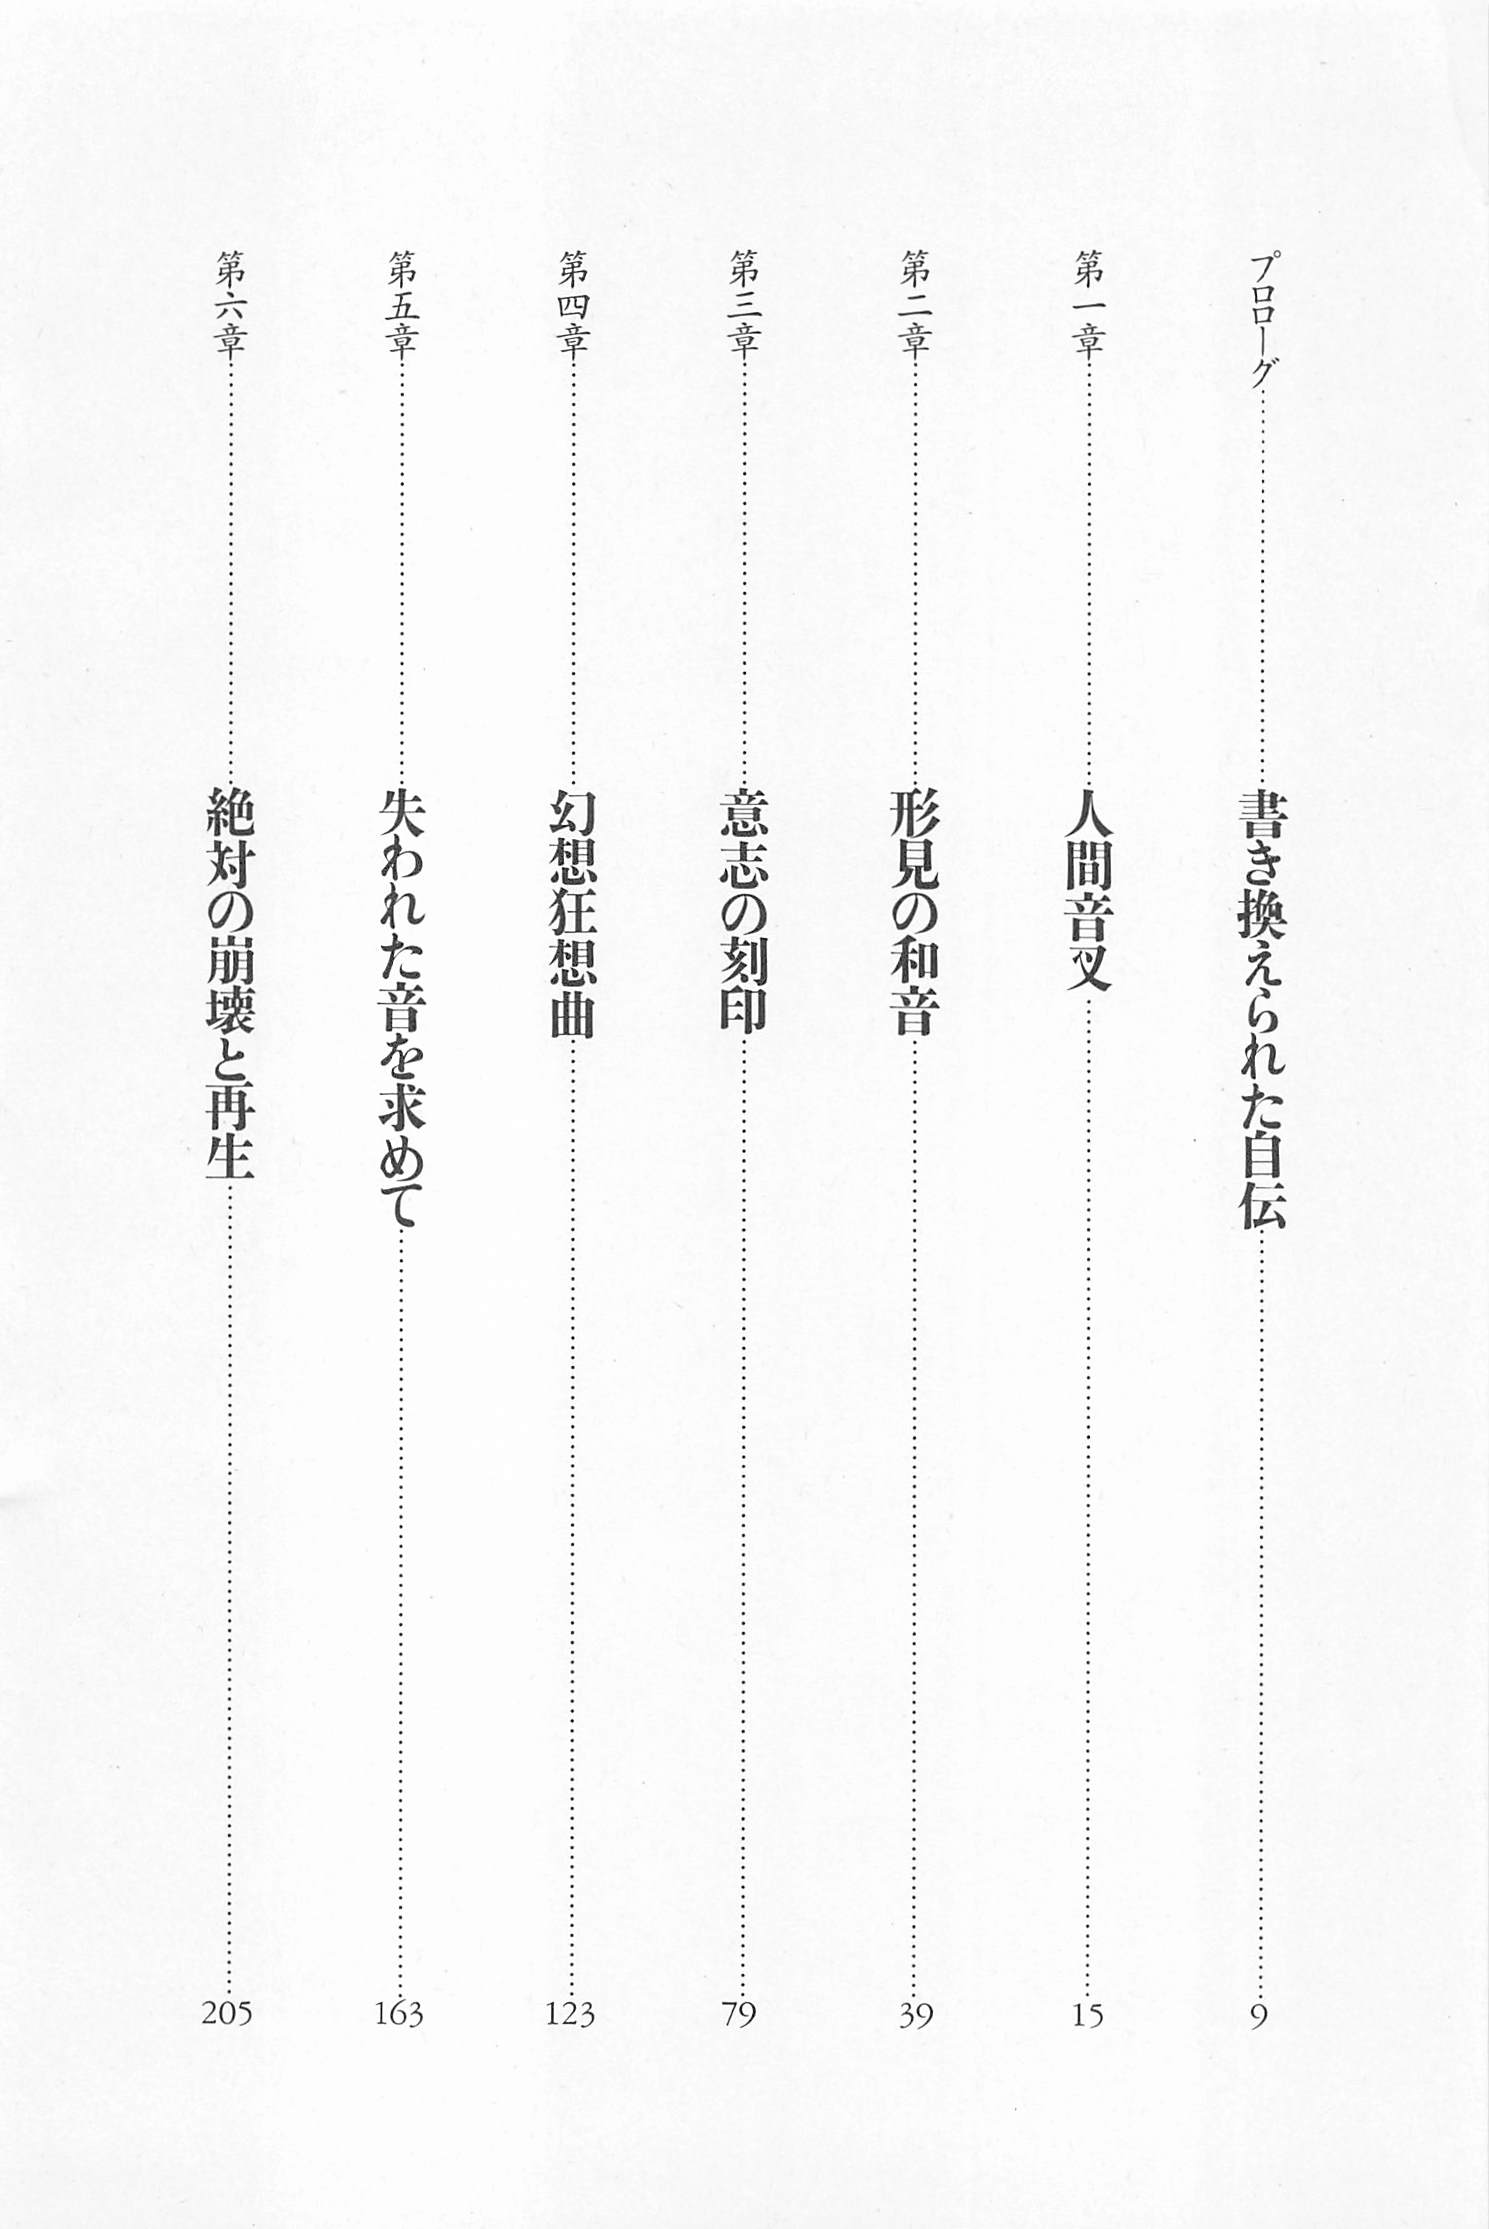 プロローグ……書き換えられた自伝……9
第一章……人間音叉……15
第二章……形見の和音……39
第三章……意志の刻印……79
第四章……幻想狂想曲……123
第五章……失われた音を求めて……163
第六章……絶対の崩壊と再生……205